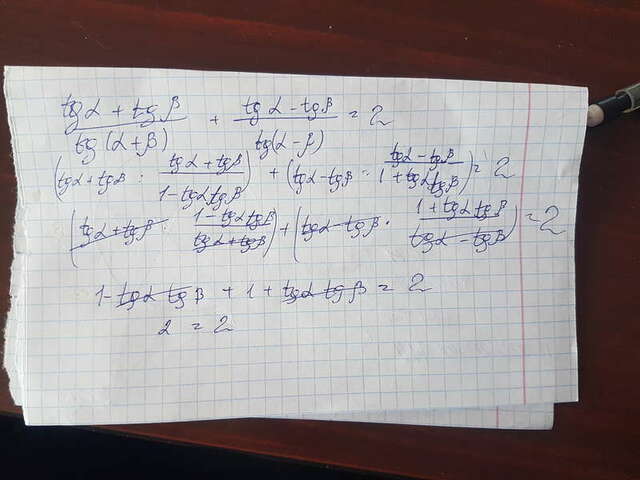 tgα + tgβ / tg(α+β) + tgα - tgβ / tg(α-β) = 2
(tgα + tgβ : tgα + tgβ / 1 - tgαtgβ) + (tgα - tgβ : tgα - tgβ / 1 + tgαtgβ) = 2
(tgα + tgβ · 1 - tgαtgβ / tgα + tgβ) + (tgα - tgβ · 1 + tgαtgβ / tgα - tgβ) = 2
1 - tgαtgβ + 1 + tgαtgβ = 2
2 = 2